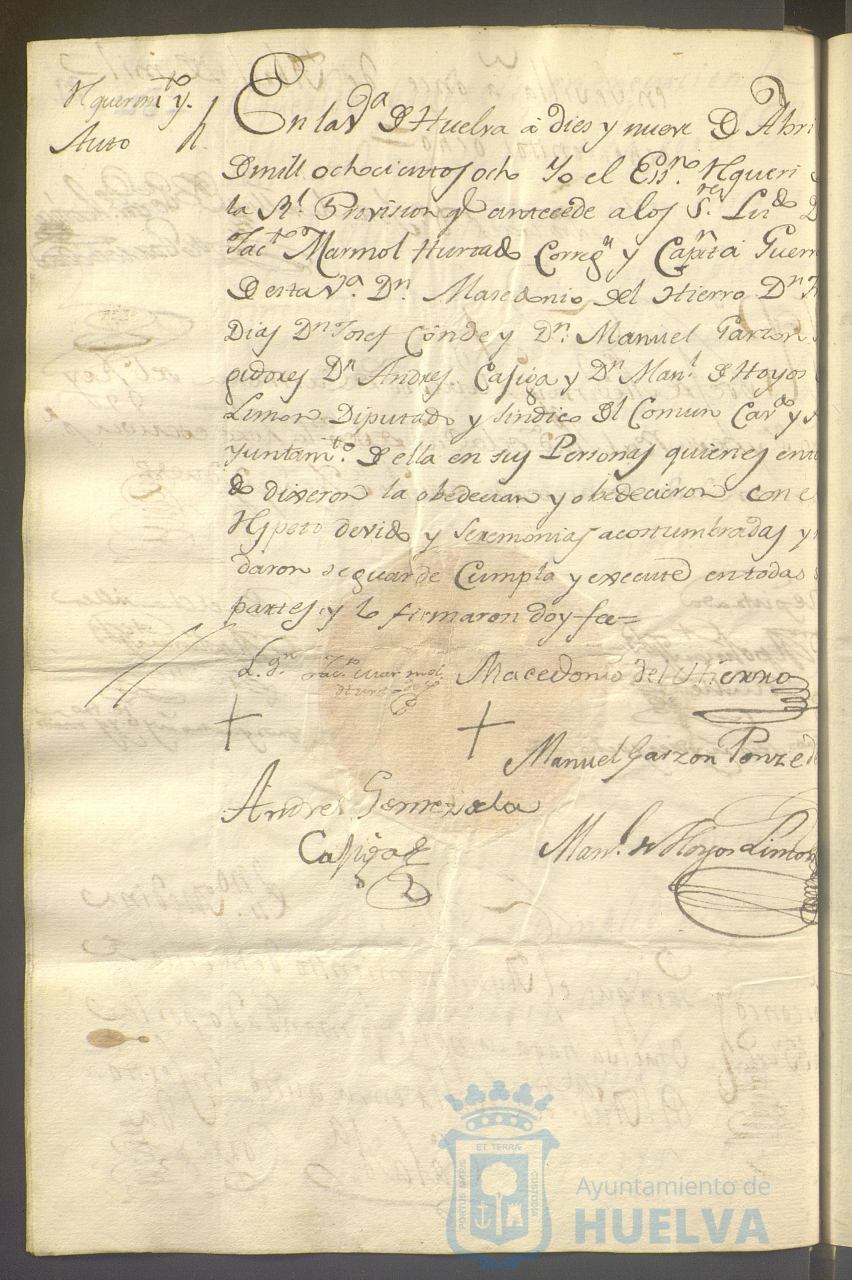 Rquerimto. y.
Auto
En la Va. D Huelva á dies y nueve D Abri
D mill ochocientos och Yo el Essno. Rqueri
la Rl. Provision q antecede a los Sres. Lizdo D
Jacto. Marmol Hurtado Corregr y Capn. á Guerr
D esta Va. Dn. Macedonio del Hierro Dn
Dias Dn Josef Conde y Dn. Manuel Garzon
gidores Dn Andres Casiga y Dn Manl. D Hoyos
Limon Diputado y Sindico Dl Comun Cavdo y
Yuntamto. D ella en sus Personas quienes ent
do dixeron la obedecian y obedecieron con e
Rspeto devido y Seremonias acostumbradas y
daron se guarde Cumpla y execute en todas
partes y lo firmaron doy fee=
L. Dn Jacto. Marmol
Hurtado
Macedonio del Hierro
Manuel Garzon Ponze de
Andres Gomez de la
Cassiga
Manl. de Hoyos Limon
ET TERRÆ
PORTUS MARIS
CUSTODIA
Ayuntamiento de
HUELVA